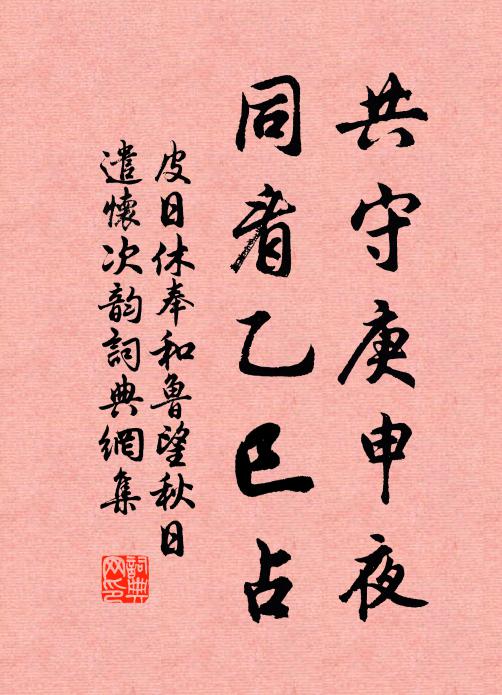 共守庚申夜
同看乙巳占
皮日休奉和魯望秋日
遣懷次韵詞典網集
詞典
网印